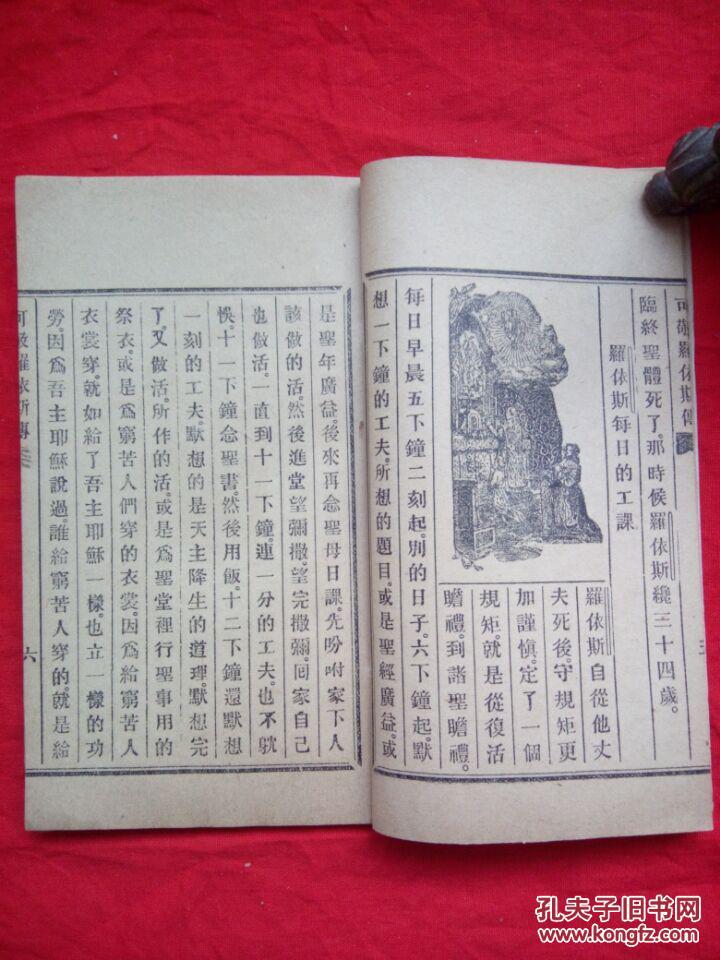 可敬羅依斯傳
臨終聖體死了。那時候羅依斯纔三十四歲。
羅依斯每日的工課
羅依斯自從他丈
夫死後。守規矩更
加謹慎。定了一個
規矩。就是從復活
瞻禮。到諸聖瞻禮。
每日早晨五下鐘二刻起。別的日子。六下鐘起。默
想一下鐘的工夫。所想的題目。或是聖經廣益。或
是聖年廣益。後來再念聖母日課。先吩咐家下人
該做的活。然後進堂望彌撒。望完撒彌。回家自己
也做活。一直到十一下鐘。連一分的工夫。也不躭
悞。十一下鐘念聖書。然後用飯。十二下鐘還默想
一刻的工夫。默想的是天主降生的道理。默想完
了。又做活。所作的活。或是爲聖堂裡行聖事用的
祭衣。或是爲窮苦人們穿的衣裳。因爲給窮苦人
衣裳穿。就如給了吾主耶穌一樣。也立一樣的功
勞。因爲吾主耶穌說過。誰給窮苦人穿的。就是給
可敬羅依斯傳
六
孔夫子旧书网
www.kongfz.com